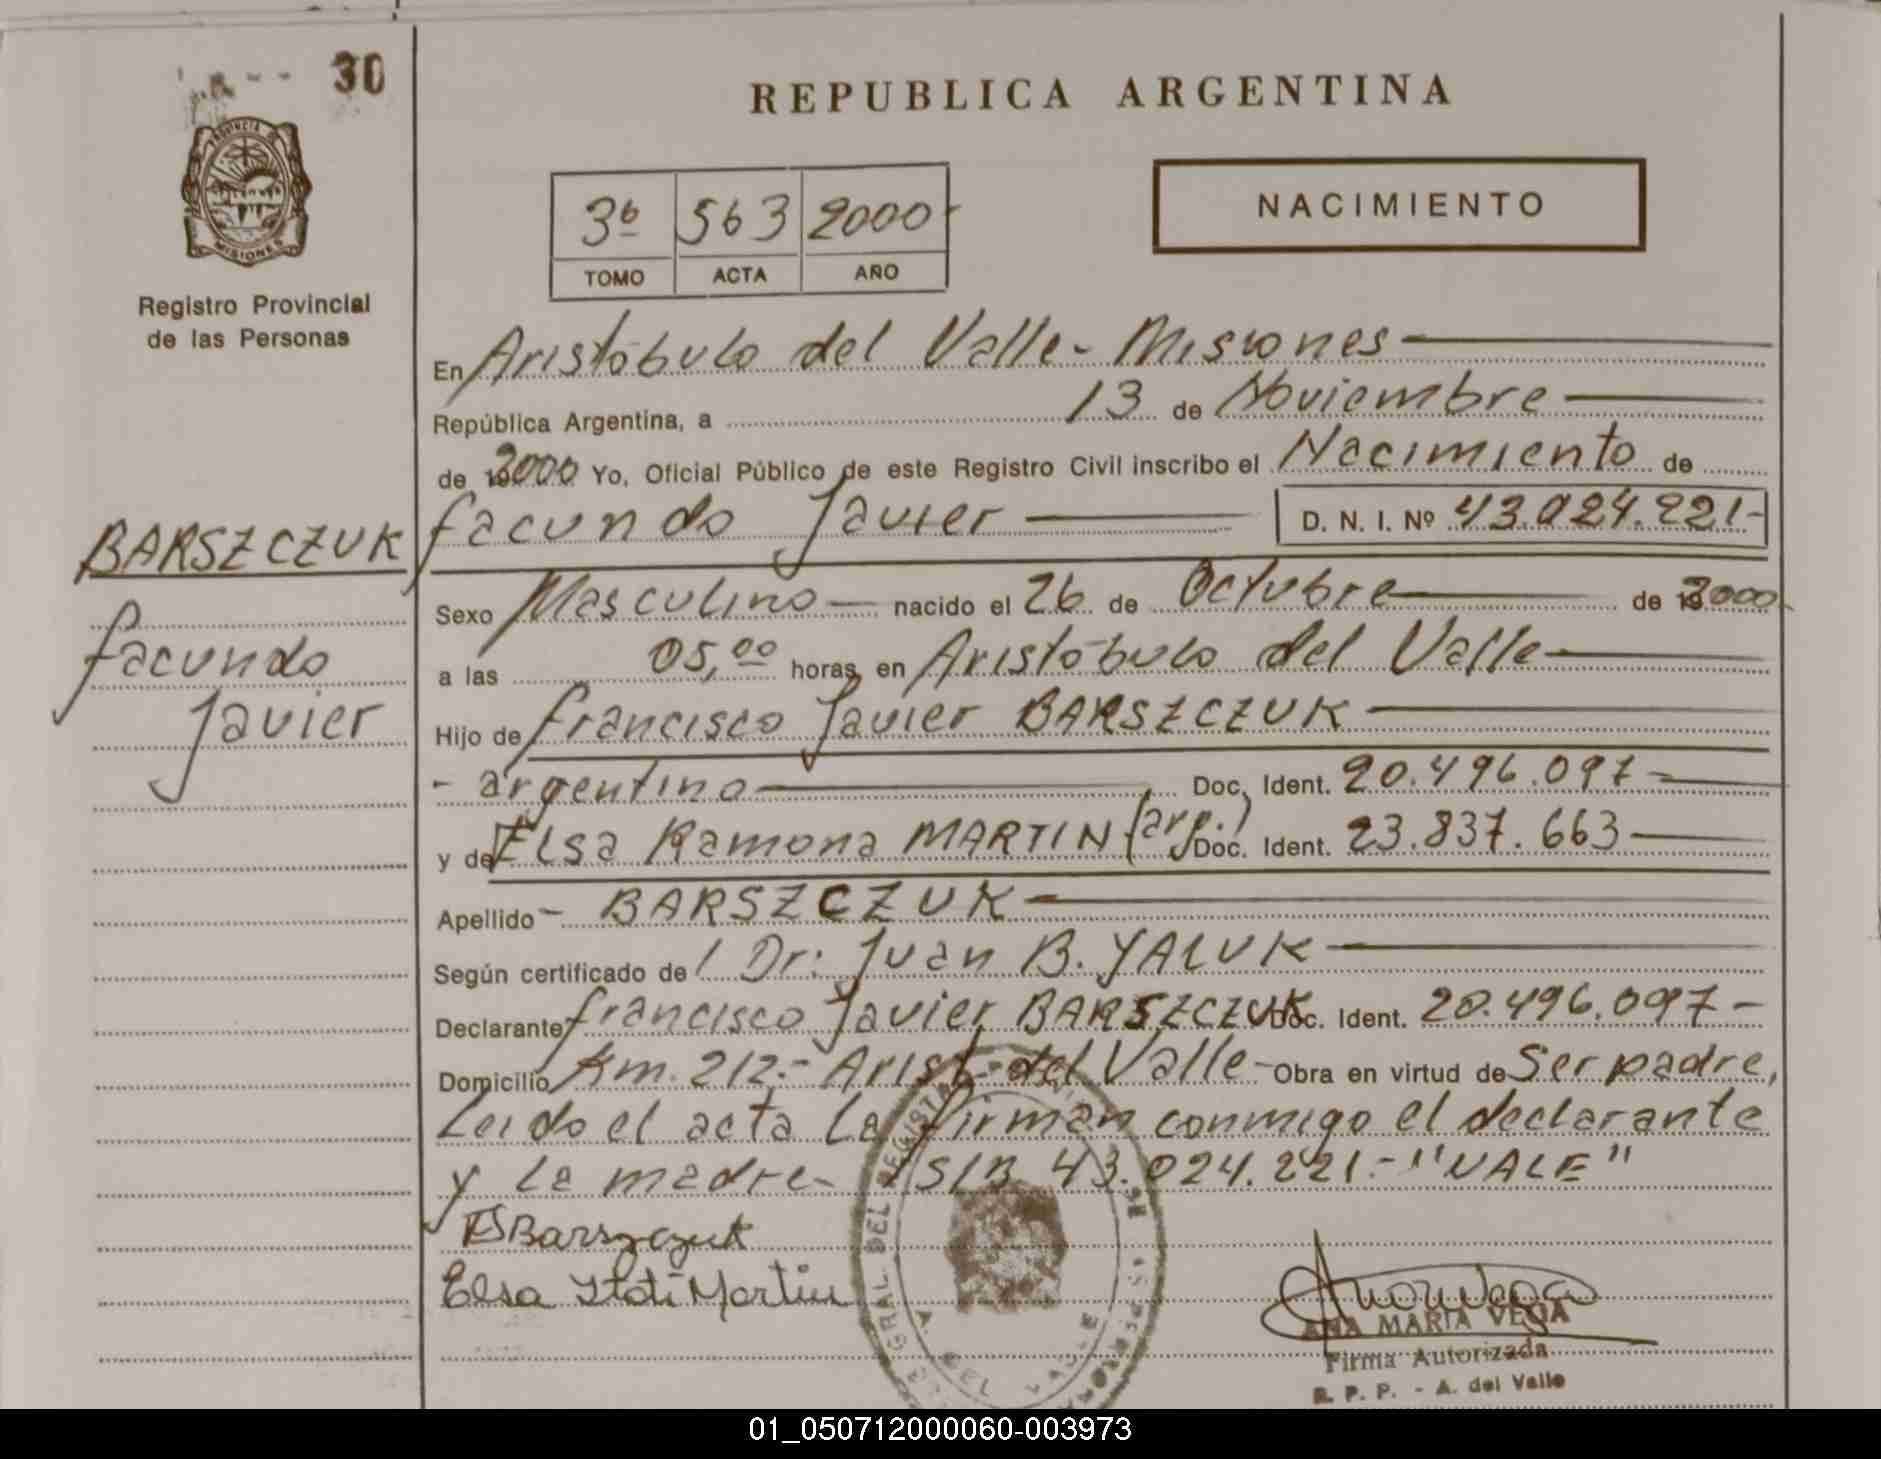 30
PROVINCIA DE
MISIONES
Registro Provincial
de las Personas
REPUBLICA ARGENTINA
NACIMIENTO
3º 563 2000
TOMO ACTA AÑO
En Aristóbulo del Valle - Misiones
República Argentina, a 13 de Noviembre
de 2000 Yo, Oficial Público de este Registro Civil inscribo el Nacimiento de
BARSZCZUK
facundo Javier D. N. I. Nº 43.024.221-
facundo
Javier
Sexo Masculino nacido el 26 de Octubre de 2000
a las 05,00 horas, en Aristóbulo del Valle
Hijo de francisco Javier BARSZCZUK
- argentino Doc. Ident. 20.496.097-
y de Elsa Ramona MARTIN (arg.) Doc. Ident. 23.837.663
Apellido - BARSZCZUK -
Según certificado de / Dr: Juan B. YALUK
Declarante francisco Javier BARSZCZUK Doc. Ident. 20.496.097-
Domicilio Km. 212.- Arist. del Valle - Obra en virtud de Ser padre,
Leido el acta la firman conmigo el declarante
y la madre- S/B 43.024.221.- "VALE"
Barszczuk
Elsa Itatí Martin
ANA MARIA VEGA
Firma Autorizada
R. P. P. - A. del Valle
A. DEL VALLE
01_050712000060-003973